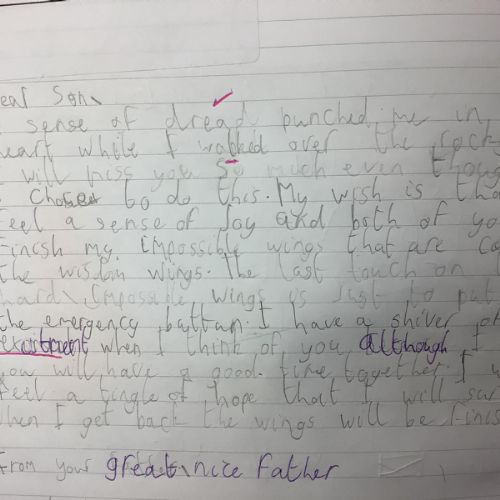 ear Son,
sense of dread punched me in
heart while I walked over the rock
I will miss you so much even thoug
Chosen to do this. My wish is tha
feel a sense of Joy and both of yo
Finish my impossible wings that are ca
the wisdom wings. The last touch on
hard, Impossible wings is Just to put
the emergency button. I have a shiver of
excitement when I think of you although I
you will have a good time together. I w
feel a tingle of hope that I will
when I get back the wings will be finis
From your great nice Father